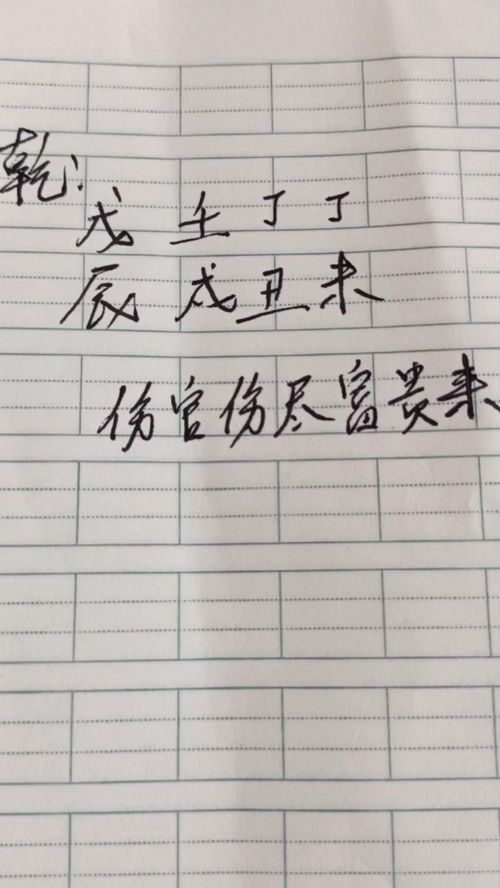 乾:
戊 壬 丁 丁
辰 戌 丑 未
伤官伤尽富贵来